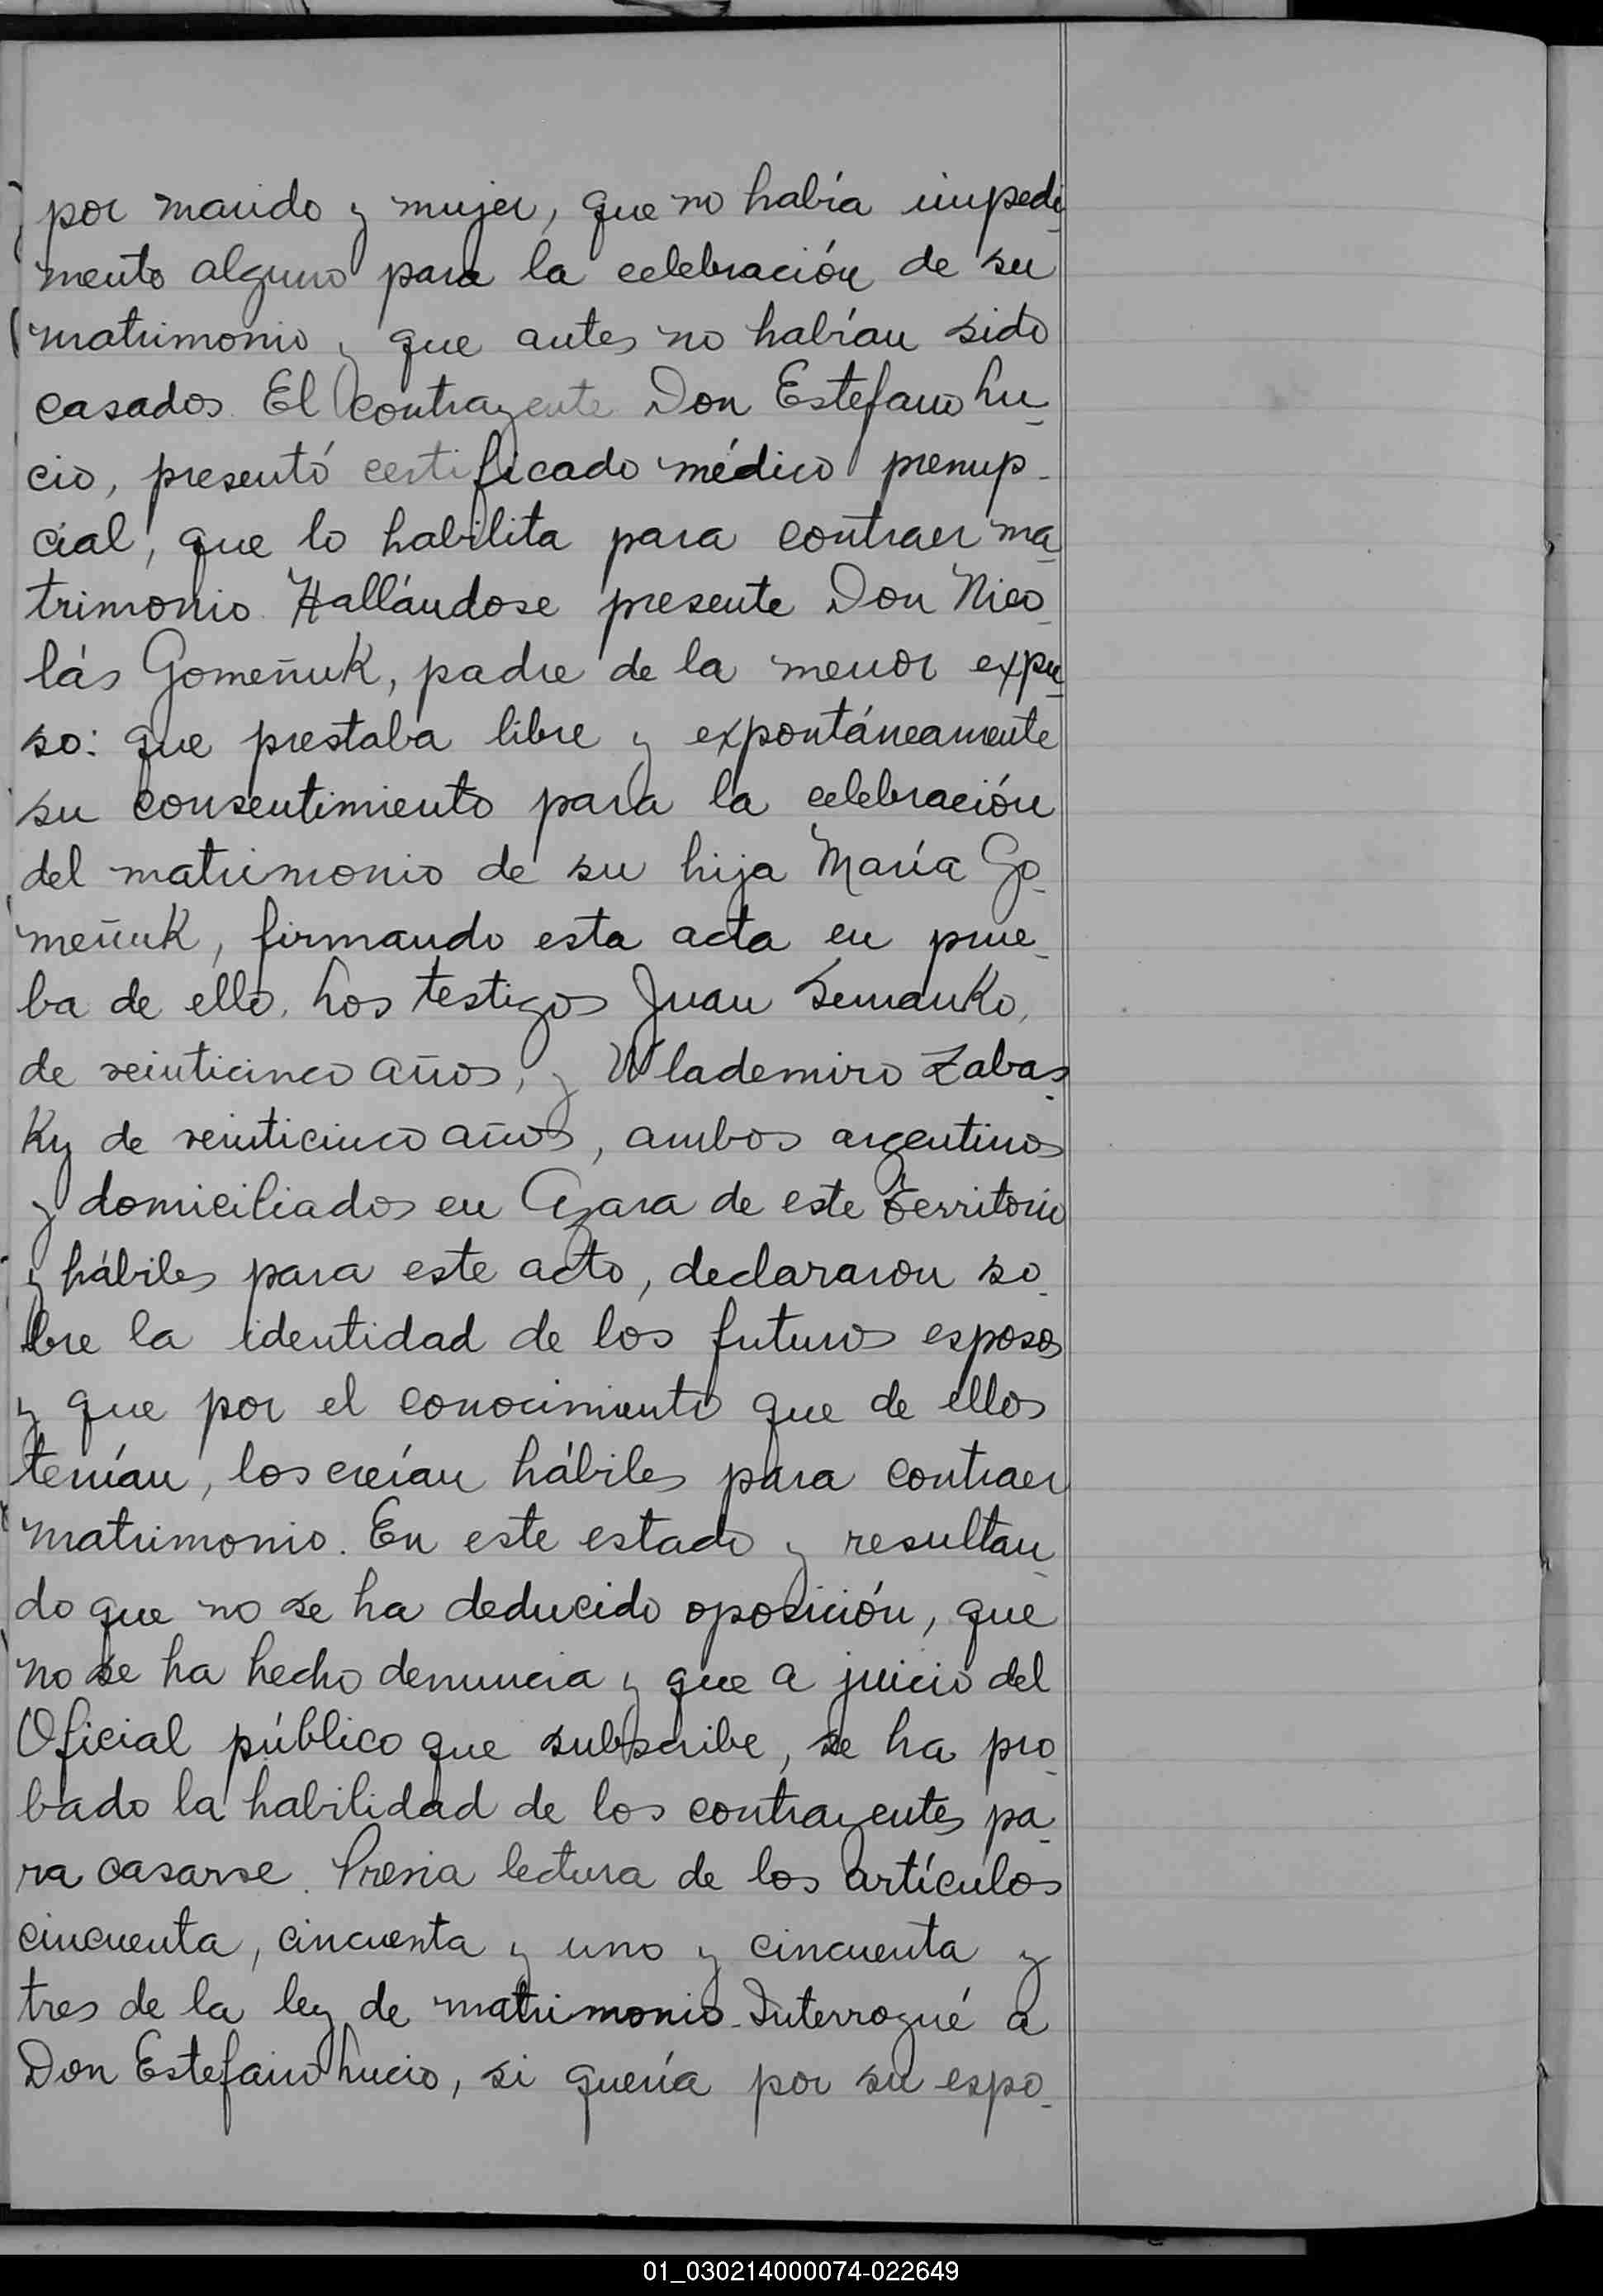 por marido y mujer, que no había impedi-
mento alguno para la celebración de su
matrimonio y que antes no habían sido
casados. El contrayente Don Estefano Lu-
cio, presentó certificado médico prenup-
cial, que lo habilita para contraer ma-
trimonio. Hallándose presente Don Nico-
lás Gomeñuk, padre de la menor expu-
so: que prestaba libre y expontáneamente
su consentimiento para la celebración
del matrimonio de su hija María Go-
meñuk, firmando esta acta en prue-
ba de ello. Los testigos Juan Semanko,
de veinticinco años, y Wlademiro Zabas-
ky de veinticinco años, ambos argentinos
y domiciliados en Azara de este territorio
y hábiles para este acto, declararon so-
bre la identidad de los futuros esposos
y que por el conocimiento que de ellos
tenían, los creían hábiles para contraer
matrimonio. En este estado y resultan-
do que no se ha deducido oposición, que
no se ha hecho denuncia y que a juicio del
Oficial público que subscribe, se ha pro-
bado la habilidad de los contrayentes pa-
ra casarse. Previa lectura de los artículos
cincuenta, cincuenta y uno y cincuenta y
tres de la ley de matrimonio. Interrogué a
Don Estefano Lucio, si quería por su espo-
01_030214000074-022649